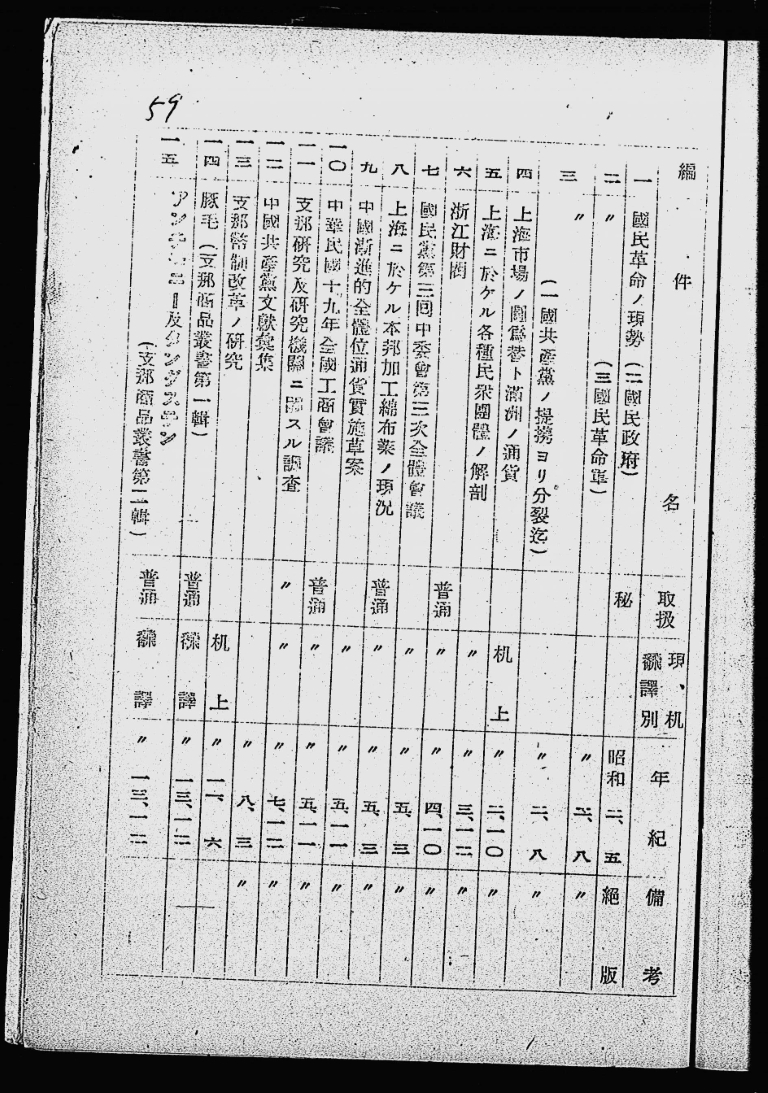 59
編 件名 取扱 現、机飜譯別 年紀 備考
一 國民革命ノ現勢(二國民政府) 秘 昭和二、五 絕版
二 〃 (三國民革命軍) 〃 〃
三 〃 (一國共産黨ノ提携ヨリ分裂迄) 〃 二、八 〃
四 上海市場ノ圓爲替ト滿洲ノ通貨
五 上海ニ於ケル各種民衆團體ノ解剖 机上 〃 二、一〇 〃
六 浙江財閥 〃 〃 三、一二 〃
七 國民黨第三回中委會第三次全體會議 普通 〃 〃 四、一〇 〃
八 上海ニ於ケル本邦加工綿布業ノ現況 〃 〃 五、三 〃
九 中國漸進的全體位通貨實施草案 普通 〃 〃 五、三 〃
一〇 中華民國十九年全國工商會議 〃 〃 五、一一 〃
一一 支那研究及研究機關ニ關スル調査 普通 〃 〃 五、一一 〃
一二 中國共産黨文獻彙集 〃 〃 〃 七、一二 〃
一三 支那幣制改革ノ研究 〃 八、三 〃
一四 豚毛(支那商品叢書第一輯) 普通 机上 飜譯 〃 〃 一三、一二
一五 アンチモニー及タングステン
(支那商品叢書第二輯) 普通 飜譯 〃 一三、一二